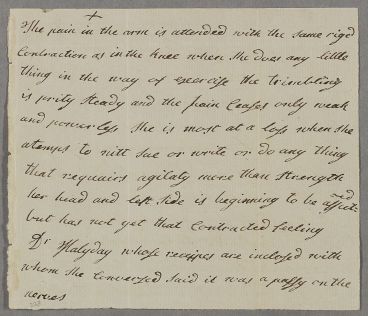 +
The pain in the arm is attended with the same riged
Contraction as in the knee when she does any little
thing in the way of exercise the trimbling
is prity steady and the pain Ceases only weak
and powerless she is most at a loss when she
atemps to nitt sue or write or do any thing
that requairs agilaty more than strength
her head and left side is beginning to be affict-ed
but has not yet that Contracted feeling
Dr Halyday whose receipes are inclosed with
whom she Conversed said it was a palsy on the
nerves